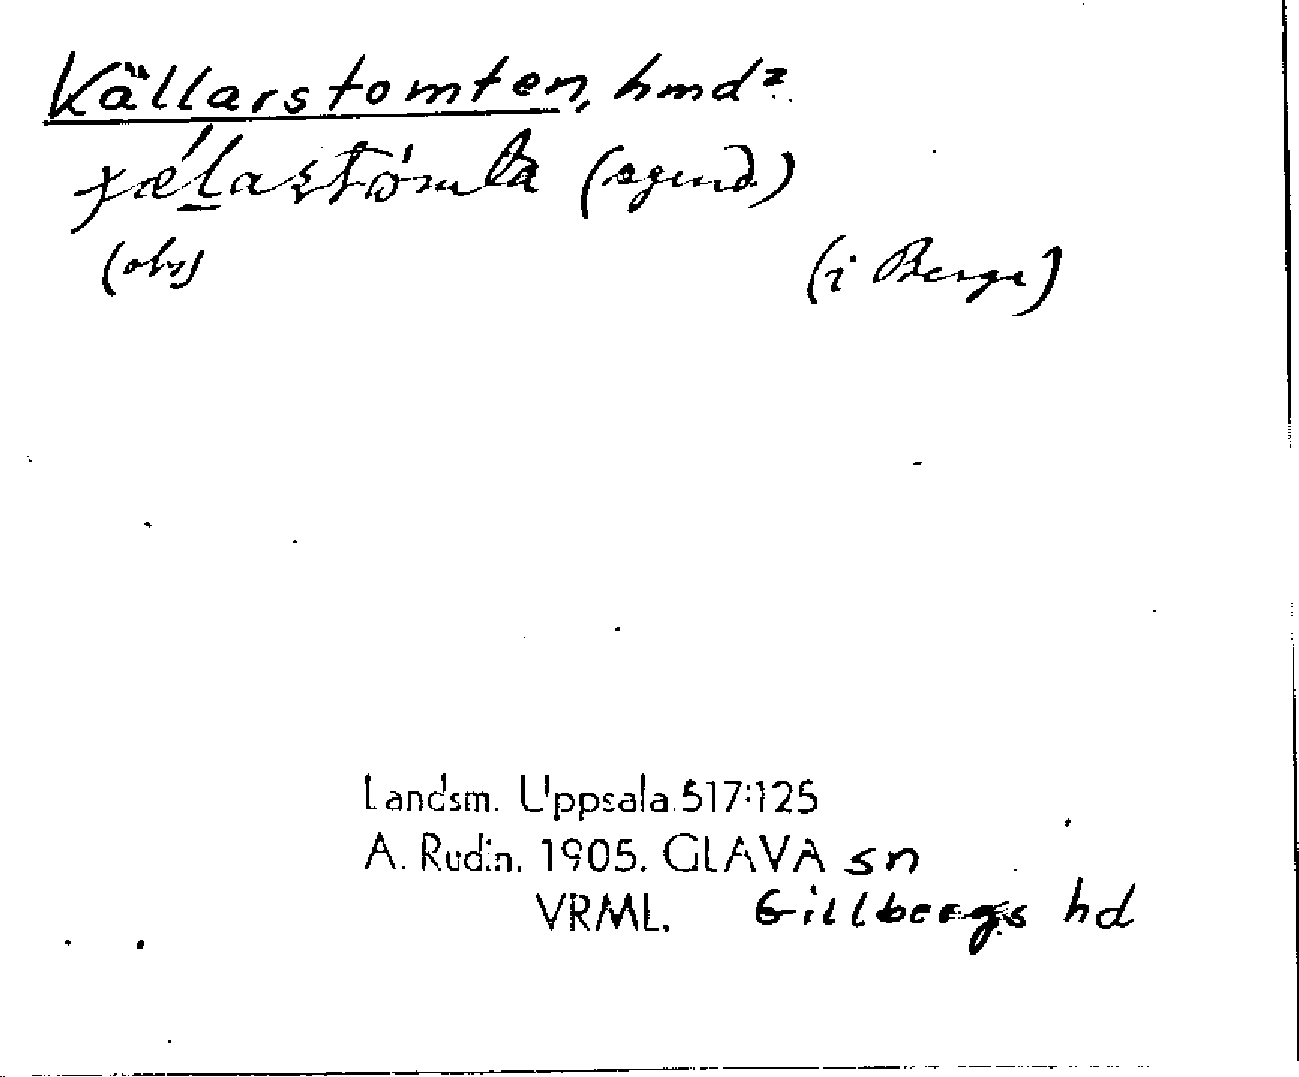 Källarstomten, hmd²
(ägend.)
(obs)
(i Berge)
Landsm. Uppsala 517:125
A. Rudin. 1905. GLAVA sn
VRML. Gillbergs hd